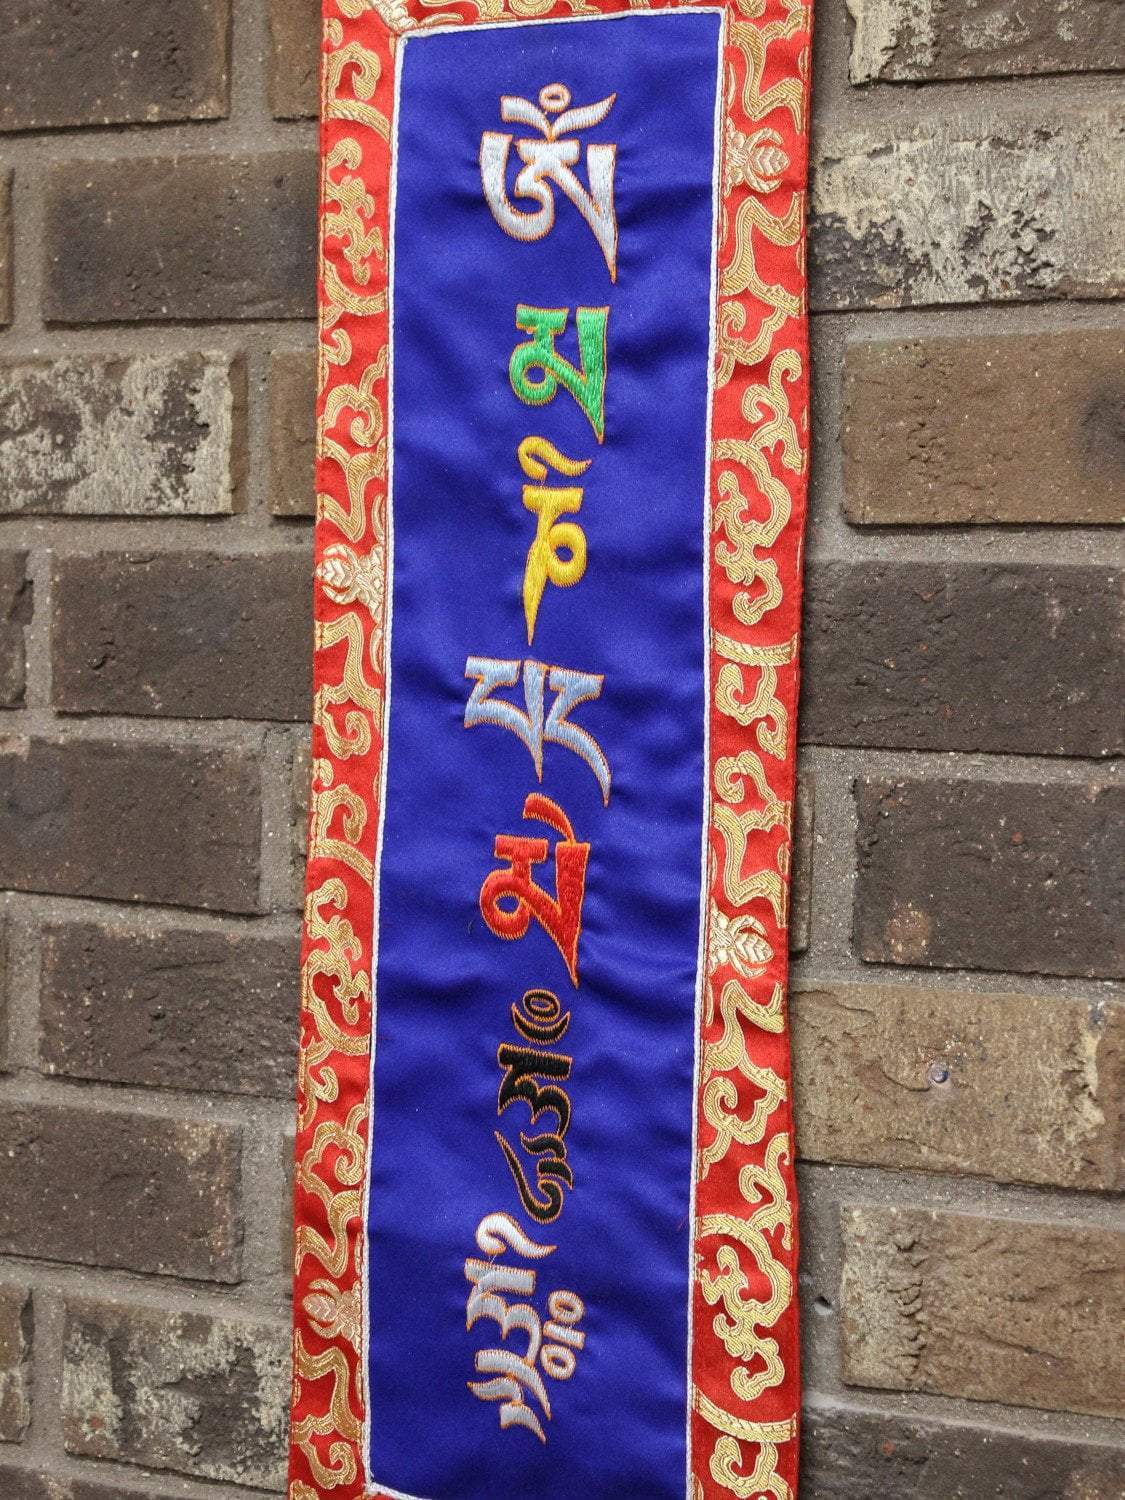 ཨོཾ་མ་ཎི་པད་མེ་ཧཱུྃ་ཧྲཱིཿ